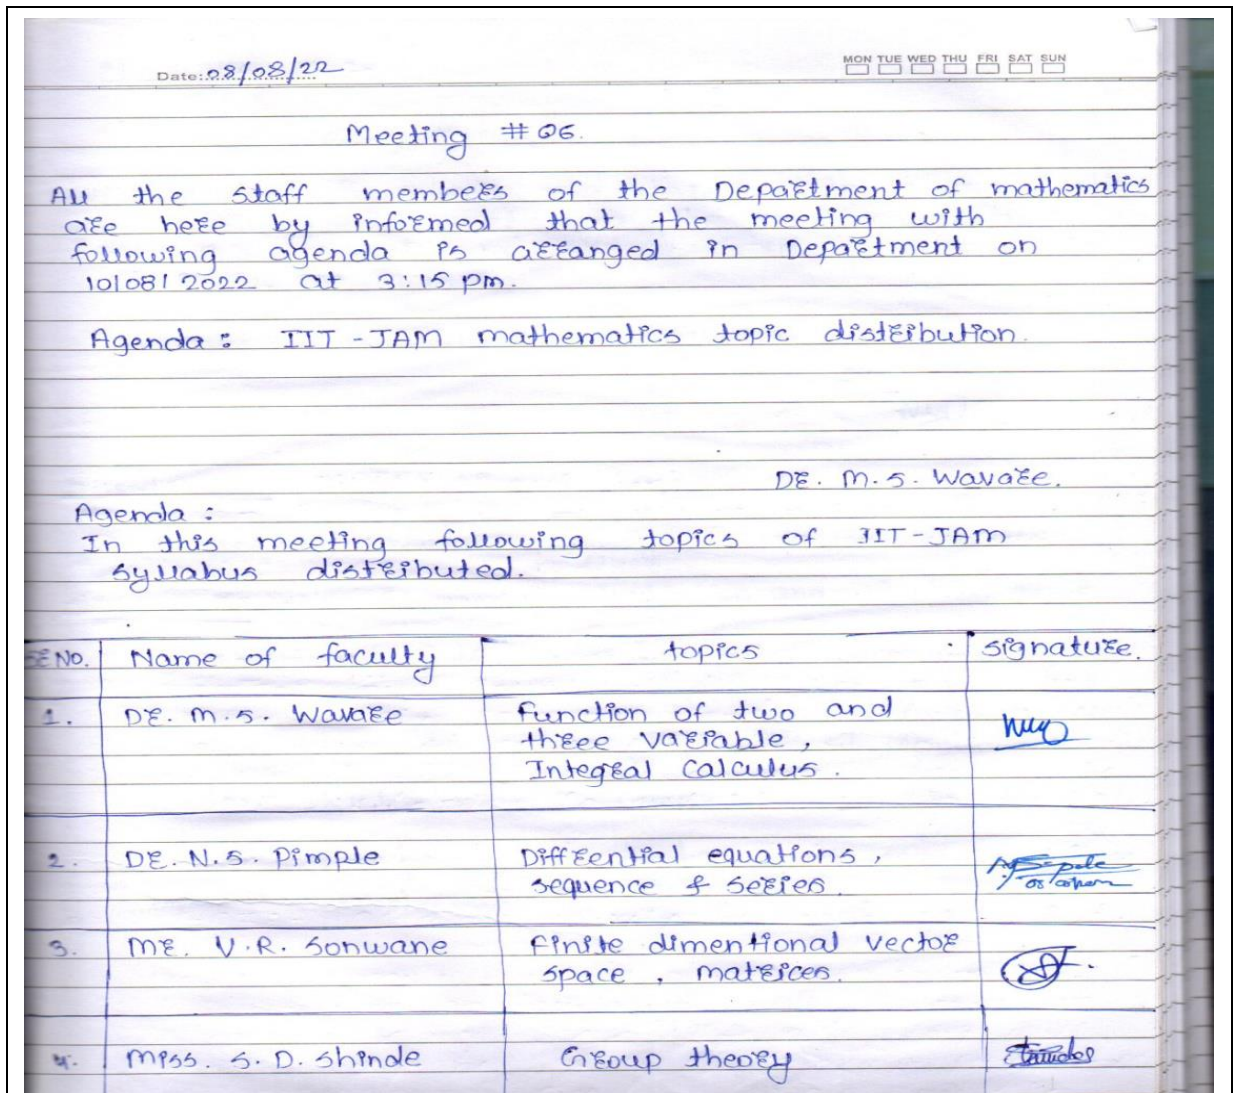 Date: 08/08/22
MON TUE WED THU FRI SAT SUN
Meeting # 06.
All the staff members of the Department of mathematics
are here by informed that the meeting with
following agenda is arranged in Department on
10/08/2022 at 3:15 pm.
Agenda : IIT - JAM mathematics topic distribution.
Dr. M. S. Wavare.
Agenda :
In this meeting following topics of IIT - JAM
syllabus distributed.
Sr No. Name of faculty topics signature.
1. Dr. M. S. Wavare Function of two and
three variable,
Integral Calculus.
2. Dr. N. S. Pimple Diffrential equations,
sequence & series.
3. Mr. V. R. Sonwane Finite dimentional vector
space, matrices.
4. Miss. S. D. Shinde Group theory